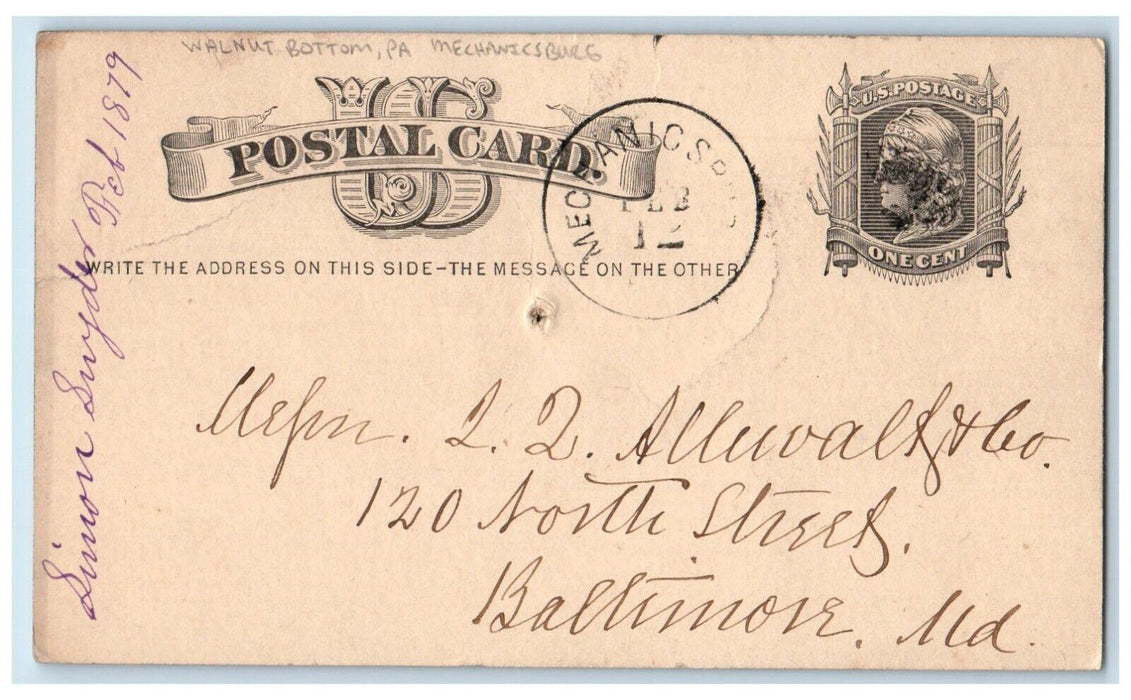 WALNUT BOTTOM, PA MECHANICSBURG
Simon Snyder Feb 1879
US
POSTAL CARD.
WRITE THE ADDRESS ON THIS SIDE–THE MESSAGE ON THE OTHER
MECHANICSB
FEB
12
U.S. POSTAGE
ONE CENT
Messrs. & Co.
120 North Street.
Baltimore. Md.